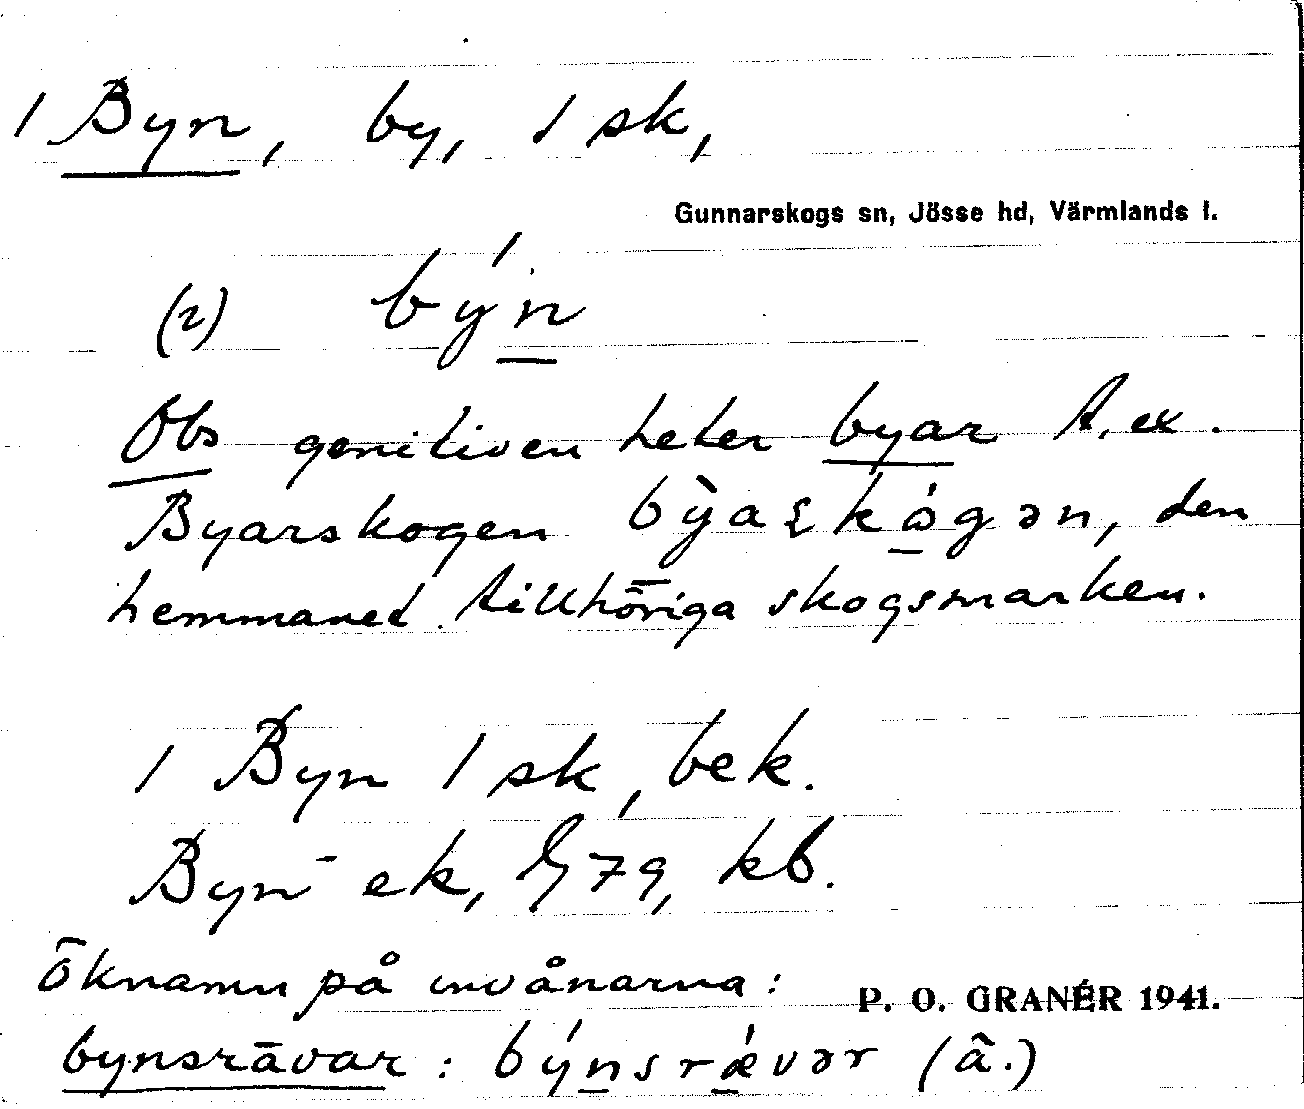 1 Byn, by, 1 sk,
Gunnarskogs sn, Jösse hd, Värmlands l.
(2) býn
Obs genitiven heter byar t. ex.
Byarskogen den
hemmanet tillhöriga skogsmarken.
1 Byn 1 sk, bek.
Byn ek, G79, kb.
Öknamn på invånarna:
P. O. GRANÉR 1941.
bynsrävar: býnsrǽvər (ä.)